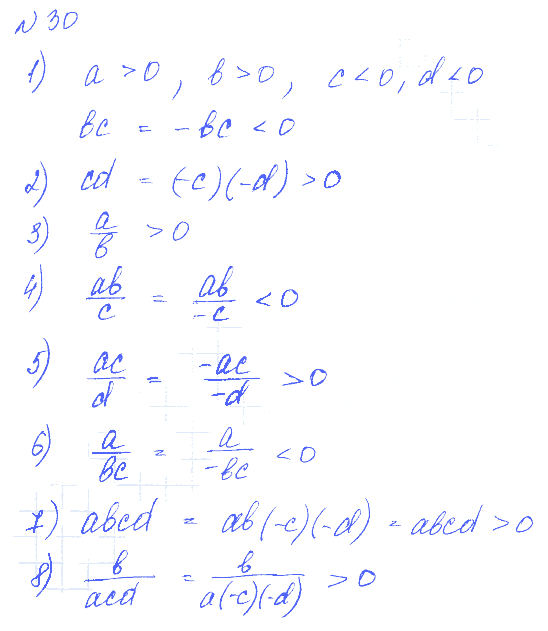 №30
1) a > 0, b > 0, c < 0, d < 0
bc = -bc < 0
2) cd = (-c)(-d) > 0
3) a/b > 0
4) ab/c = ab/-c < 0
5) ac/d = -ac/-d > 0
6) a/bc = a/-bc < 0
7) abcd = ab(-c)(-d) = abcd > 0
8) b/acd = b/a(-c)(-d) > 0